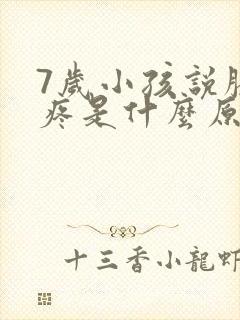 7歲小孩說
疼是什麼原
十三香小龍蝦